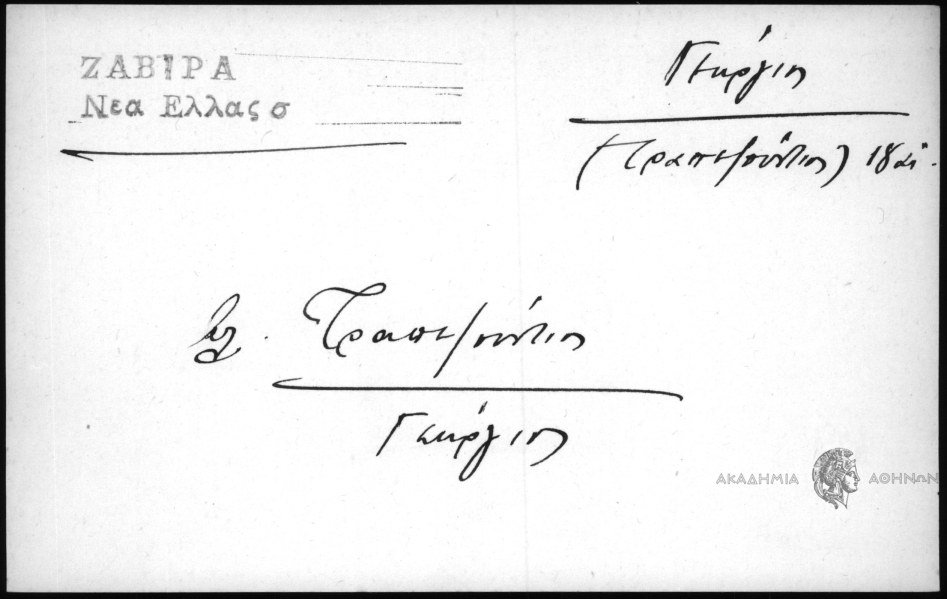 ΖΑΒΙΡΑ
Νεα Ελλας σ
Γεώργιος
(Τραπεζούντιος)
βλ. Τραπεζούντιος
Γεώργιος
ΑΚΑΔΗΜΙΑ ΑΘΗΝΩΝ